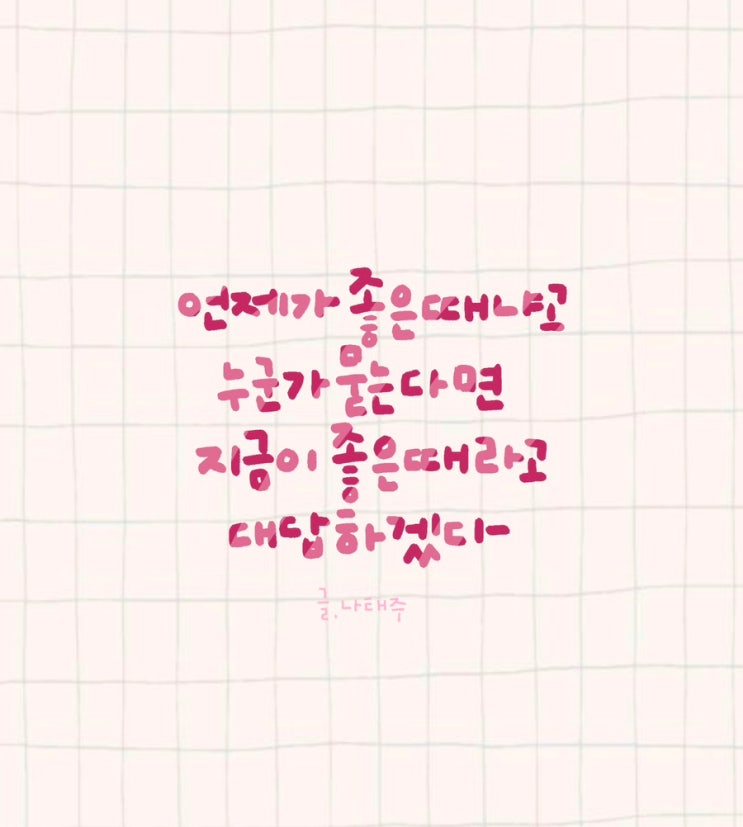 언제가 좋은때냐고
누군가 묻는다면
지금이 좋은때라고
대답하겠다
글. 나태주